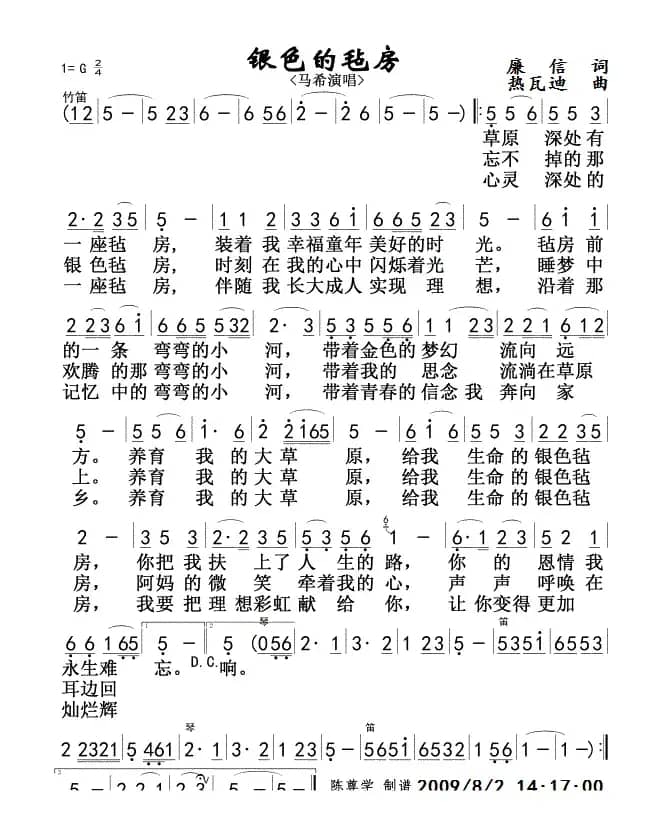 银色的毡房
1=G 2/4
<马希演唱>
廉信 词
热瓦迪 曲
竹笛
(12 | 5 - | 5 23 | 6 - | 6 56 | 2 - | 2 6 | 5 - | 5 -) |: 5 5 6 | 5 5 3 |
草原 深处有
忘不 掉的那
心灵 深处的
2·2 35 | 5 - | 1 1 2 | 3 3 6 1 | 6 6 5 2 3 | 5 - | 5 5 3 |
一座毡 房, 装着 我 幸福童年 美好的时 光。 毡房 前
银色毡 房, 时刻 在 我的心中 闪烁着光 芒, 睡梦 中
一座毡 房, 伴随 我 长大成人 实现 理 想, 沿着 那
2 2 3 6 1 | 6 6 5 5 32 | 2· 3 | 5 3 5 5 6 | 1 1 2 3 | 2 2 1 6 12 |
的一 条 弯弯的小 河, 带着金色的 梦幻 流向 远
欢腾 的那 弯弯的小 河, 带着我的 思念 流淌在草原
记忆 中的 弯弯的小 河, 带着青春的 信念 我 奔向 家
5 - | 5 5 6 | 1· 6 | 2 2 165 | 5 - | 6 6 1 | 5 5 2 | 2 2 35 |
方。 养育 我 的大草 原, 给我 生命的 银色毡
上。 养育 我 的大草 原, 给我 生命的 银色毡
乡。 养育 我 的大草 原, 给我 生命的 银色毡
房, 你把 我 扶 上了人 生的 路, 你 的 恩情 我
房, 阿妈 的 微 笑 牵着我的 心, 声 声 呼唤 在
房, 我要 把 理 想彩虹 献 给 你, 让 你变得 更加
琴
笛
6 6 1 65 | 5 - | 5 (056 | 2· 1 | 2· 3 | 1 235 | 5 - | 5351 | 6553 |
1
2
永生难 忘。D.C.响。
耳边回
灿烂辉
琴
笛
2 2321 | 5 461 | 2· 1 | 2· 3 | 5 - | 5651 | 6532 | 1 56 | 1 -) :|
3
陈尊学 制谱 2009/8/2 14·17·00